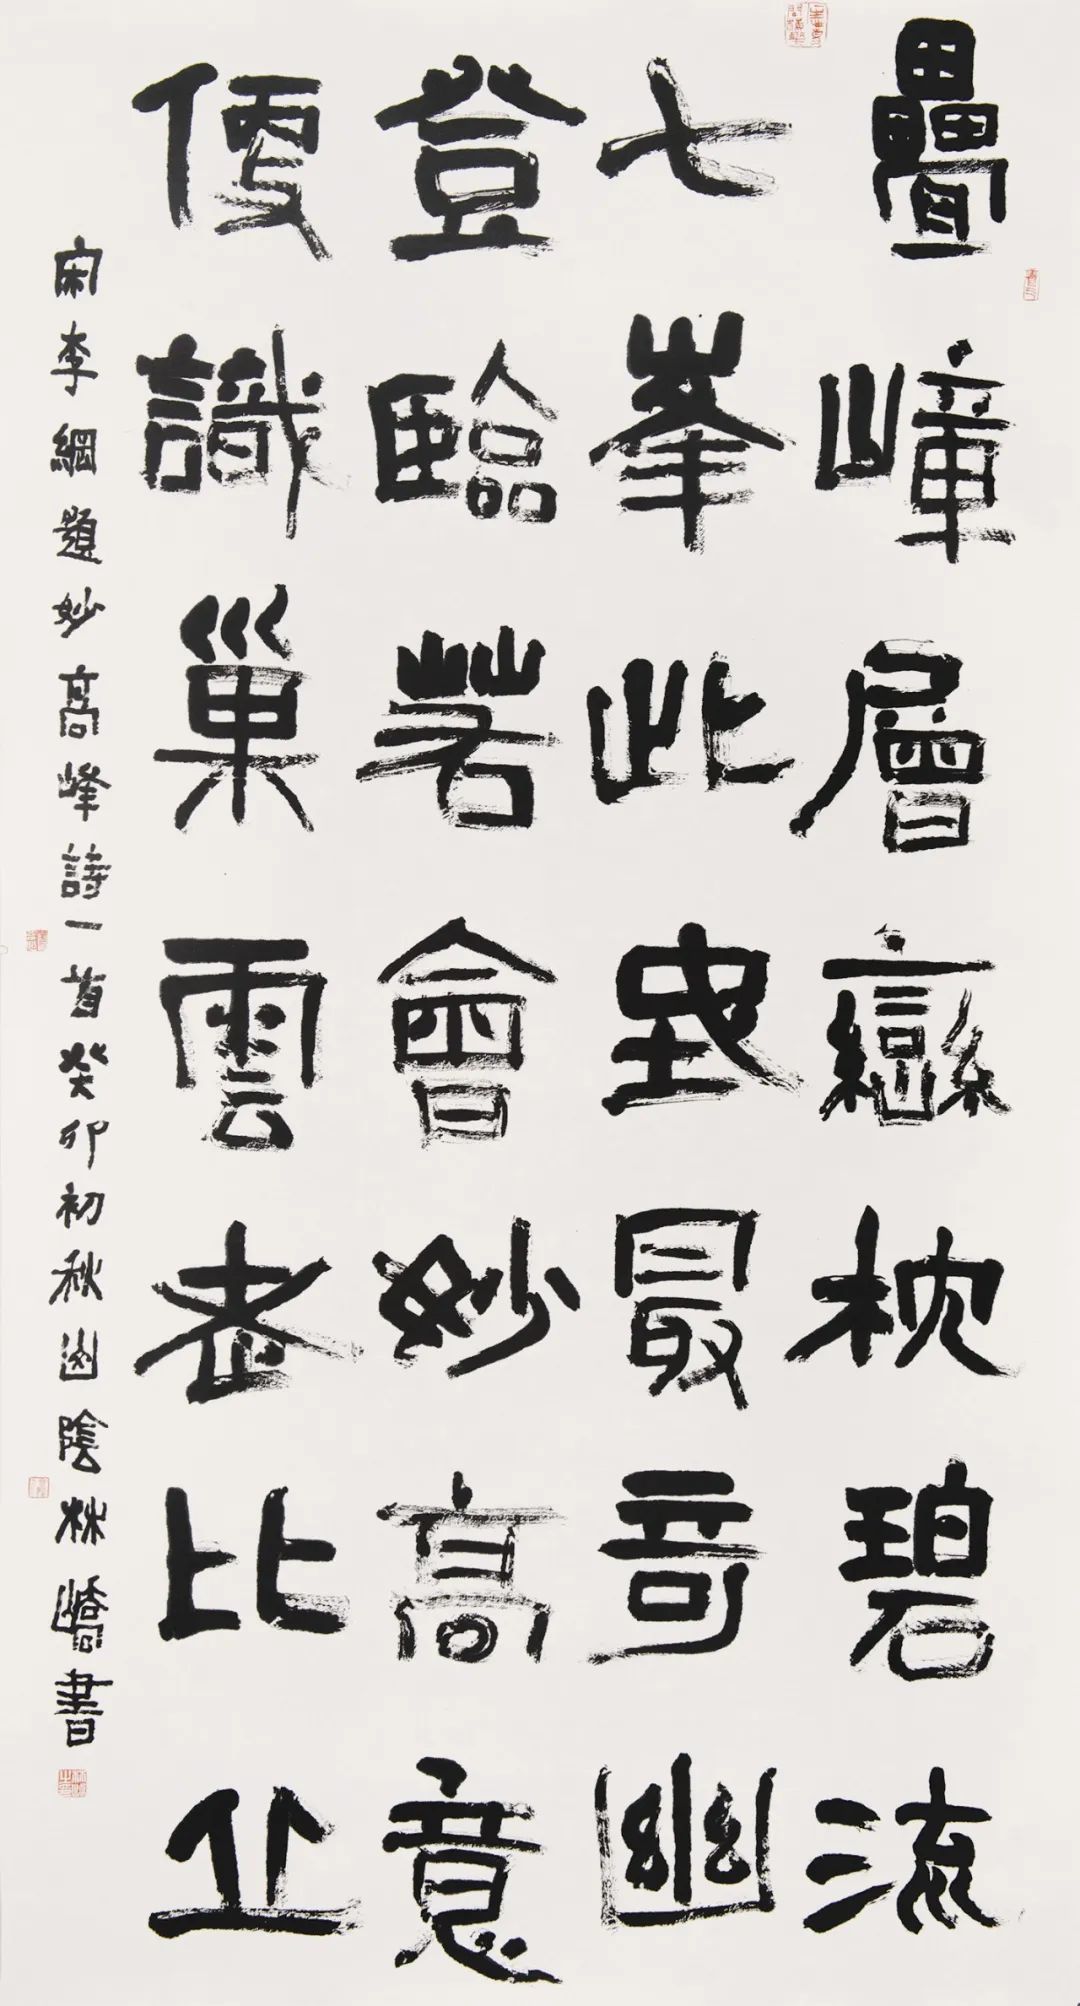 疊嶂層巒枕碧流
七峯此地最奇幽
登臨若會妙高意
便識巢雲老比丘
宋李綱題妙高峰詩一首癸卯初秋山陰林嶠書